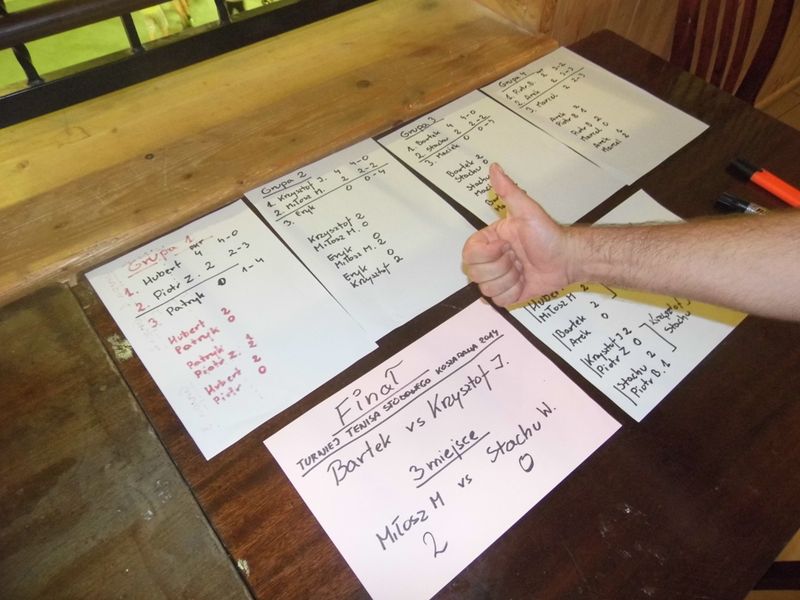 Grupa 1
pkt
1. Hubert 4 4-0
2. Piotr Z. 2 2-3
3. Patryk 0 1-4
Hubert 2
Patryk 0
Patryk 1
Piotr Z. 2
Hubert 2
Piotr 0
Grupa 2
1. Krzysztof J. 4 4-0
2. Miłosz M. 2 2-2
3. Eryk 0 0-4
Krzysztof 2
Miłosz M. 0
Eryk 0
Miłosz M. 2
Eryk 0
Krzysztof 2
Grupa 3
1. Bartek 4 4-0
2. Stachu 2 2-2
3. Maciek 0 0-4
Bartek 2
Stachu 0
Stachu
Grupa 4
1. Piotr B. 2
2. Arek 2
3. Marcel 2 2-3
Arek 2
Piotr B
Piotr B 2
Marcel
Arek
Marcel 2
Hubert
Miłosz M 2
Bartek 2
Arek 0
Krzysztof J 2
Piotr Z 0
Stachu 2
Piotr B. 1
Krzysztof J
Stachu
Finał
TURNIEJ TENISA STOŁOWEGO
2014
Bartek vs Krzysztof J.
3 miejsce
Miłosz M vs Stachu W.
2 0